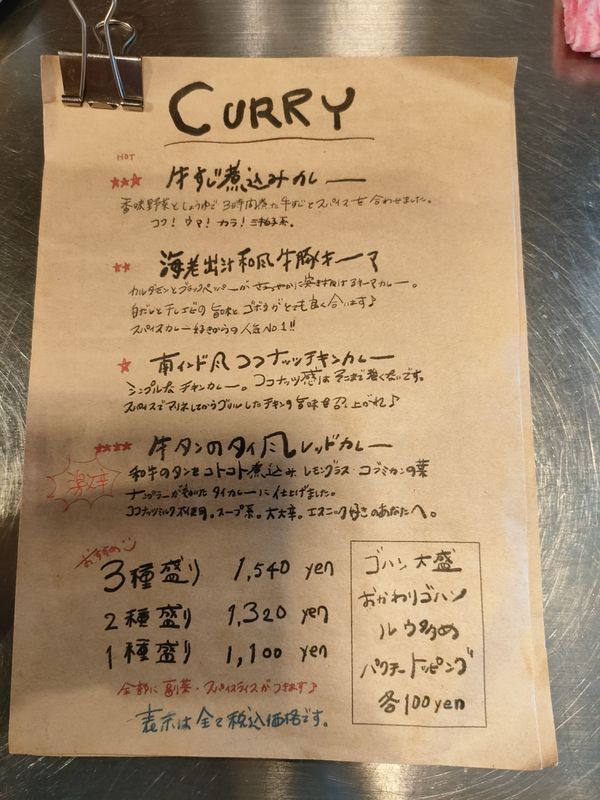 CURRY
HOT
★★★ 牛すじ煮込みカレー
香味野菜としょうゆで3時間煮た牛すじとスパイスを合わせました。
コク!ウマ!カラ!
★★ 海老出汁和風牛豚キーマ
カルダモンとブラックペッパーがさわやかに突き抜けるキーマカレー。
白だしと干しエビの旨味とゴボウがとても良く合います♪
スパイスカレー好きからの人気No.1!!
★ 南インド風ココナッツチキンカレー
シンプルなチキンカレー。ココナッツ感はそこまで強くないです。
スパイスでマリネしてからグリルしたチキンの旨味を召し上がれ♪
★★★★ 牛タンのタイ風レッドカレー
激辛
和牛のタンをコトコト煮込みレモングラス・コブミカンの葉
ナンプラーがきいたタイカレーに仕上げました。
ココナッツミルク不使用。スープ系。大大辛。エスニック好きのあなたへ。
おすすめ
3種盛り 1,540 yen
2種盛り 1,320 yen
1種盛り 1,100 yen
全部に副菜・スパイスライスがつきます♪
表示は全て税込価格です。
ゴハン大盛
おかわりゴハン
ルウ多め
パクチートッピング
各100yen